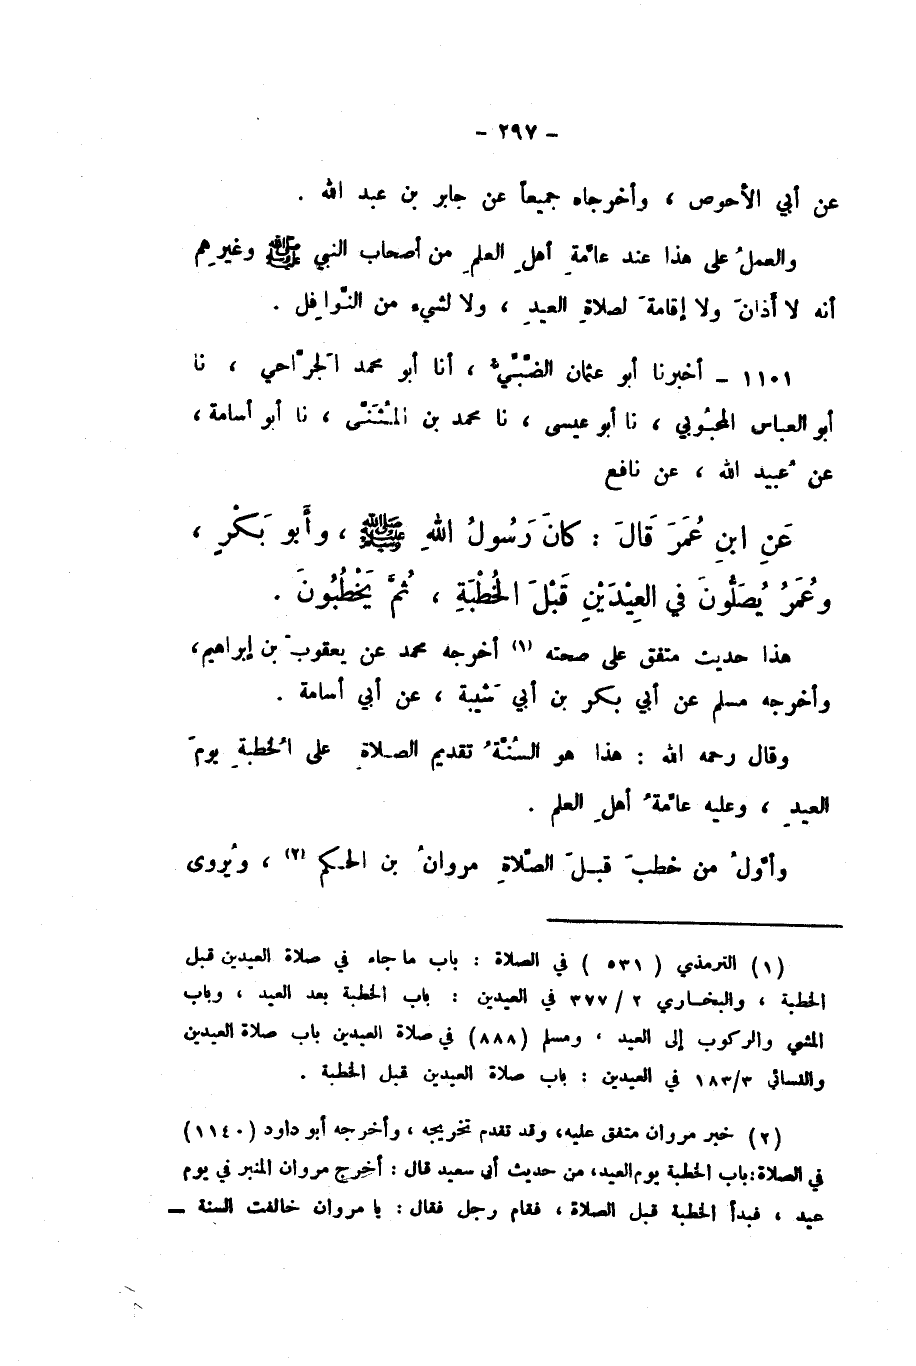 - ٢٩٧ -
عن أبي الأحوص ، وأخرجاه جميعاً عن جابر بن عبد الله .
والعملُ على هذا عند عامّةِ أهلِ العلمِ من أصحاب النبي ﷺ وغيرِهم
أنه لا أذانَ ولا إقامةَ لصلاةِ العيدِ ، ولا لشيء من النّوافِل .
١١٠١ - أخبرنا أبو عثمان الضّبّيُّ ، أنا أبو محمد الجَرّاحي ، نا
أبو العباس المحبُوبي ، نا أبو عيسى ، نا محمد بن المُثَنّى ، نا أبو أسامة ،
عن عُبيد الله ، عن نافع
عَنِ ابنِ عُمَرَ قَالَ : كانَ رَسُولُ اللهِ ﷺ ، وأَبو بَكْرٍ ،
وعُمَرُ يُصَلُّونَ في العِيْدَيْنِ قَبْلَ الخُطْبَةِ ، ثُمَّ يَخْطُبُونَ .
هذا حديث متفق على صحته (١) أخرجه محمد عن يعقوبَ بن إبراهيم ،
وأخرجه مسلم عن أبي بكر بن أبي شَيبة ، عن أبي أسامة .
وقال رحمه الله : هذا هو السُنّةُ تقديم الصلاةِ على الخُطبةِ يومَ
العيدِ ، وعليه عامّةُ أهلِ العلم .
وأوّلُ من خطبَ قبلَ الصّلاةِ مروانُ بن الحكم (٢) ، ويُروى
(١) الترمذي ( ٥٣١ ) في الصلاة : باب ما جاء في صلاة العيدين قبل
الخطبة ، والبخاري ٢ / ٣٧٧ في العيدين : باب الخطبة بعد العيد ، وباب
المشي والركوب إلى العيد ، ومسلم (٨٨٨) في صلاة العيدين باب صلاة العيدين
والنسائي ١٨٣/٣ في العيدين : باب صلاة العيدين قبل الخطبة .
(٢) خبر مروان متفق عليه، وقد تقدم تخريجه ، وأخرجه أبو داود (١١٤٠)
في الصلاة: باب الخطبة يوم العيد، من حديث أبي سعيد قال : أخرج مروان المنبر في يوم
عيد ، فبدأ الخطبة قبل الصلاة ، فقام رجل فقال : يا مروان خالفت السنة _